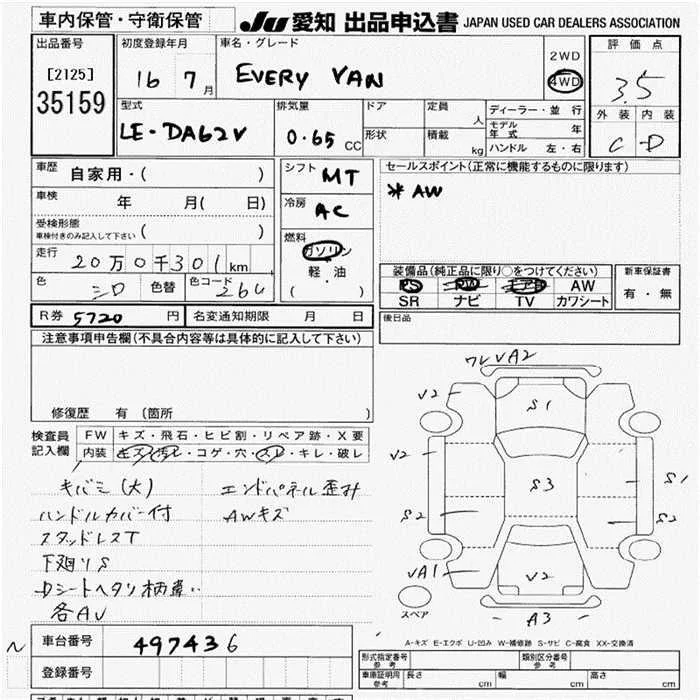 車内保管・守衛保管
JU 愛知 出品申込書 JAPAN USED CAR DEALERS ASSOCIATION
出品番号
[2125]
35159
初度登録年月
16 7月
車名・グレード
EVERY VAN
2WD
4WD
評価点
3.5
外装 内装
C D
型式
LE-DA62V
排気量
0.65 CC
ドア
形状
定員 人
積載 kg
ディーラー・並行
モデル年式 年
ハンドル 左・右
車歴
自家用・( )
車検
年 月( 日)
受検形態
車検付きのみ記入して下さい ( )
走行
20万0千301km
色 シロ 色替 色コード 26U
シフト MT
冷房 AC
燃料
ガソリン
軽・油
( ・ )
セールスポイント(正常に機能するものに限ります)
* AW
装備品(純正品に限り○をつけてください)
PS PW エアB AW
SR ナビ TV カワシート
新車保証書
有・無
R券 5720 円 名変通知期限 月 日
後日品
注意事項申告欄(不具合内容等は具体的に記入して下さい)
修復歴 有(箇所 )
検査員記入欄
FW キズ・飛石・ヒビ割・リペア跡・X要
内装 キズ・汚レ・コゲ・穴・スレ・キレ・破レ
キバミ(大) エンドパネル歪み
ハンドルカバー付 AWキズ
スタッドレスT
下廻りS
Dシートヘタリ柄違い
各AV
ワレVA2
V2
S1
V2
S3
S1
S2
S2
VA1
V2
A3
スペア
A-キズ E-エクボ U-凹み W-補修跡 S-サビ C-腐食 XX-交換済
車台番号 497436
登録番号
形式指定番号 参考
類別区分番号 参考
車庫証明用 参考 長さ cm 幅 cm 高さ cm